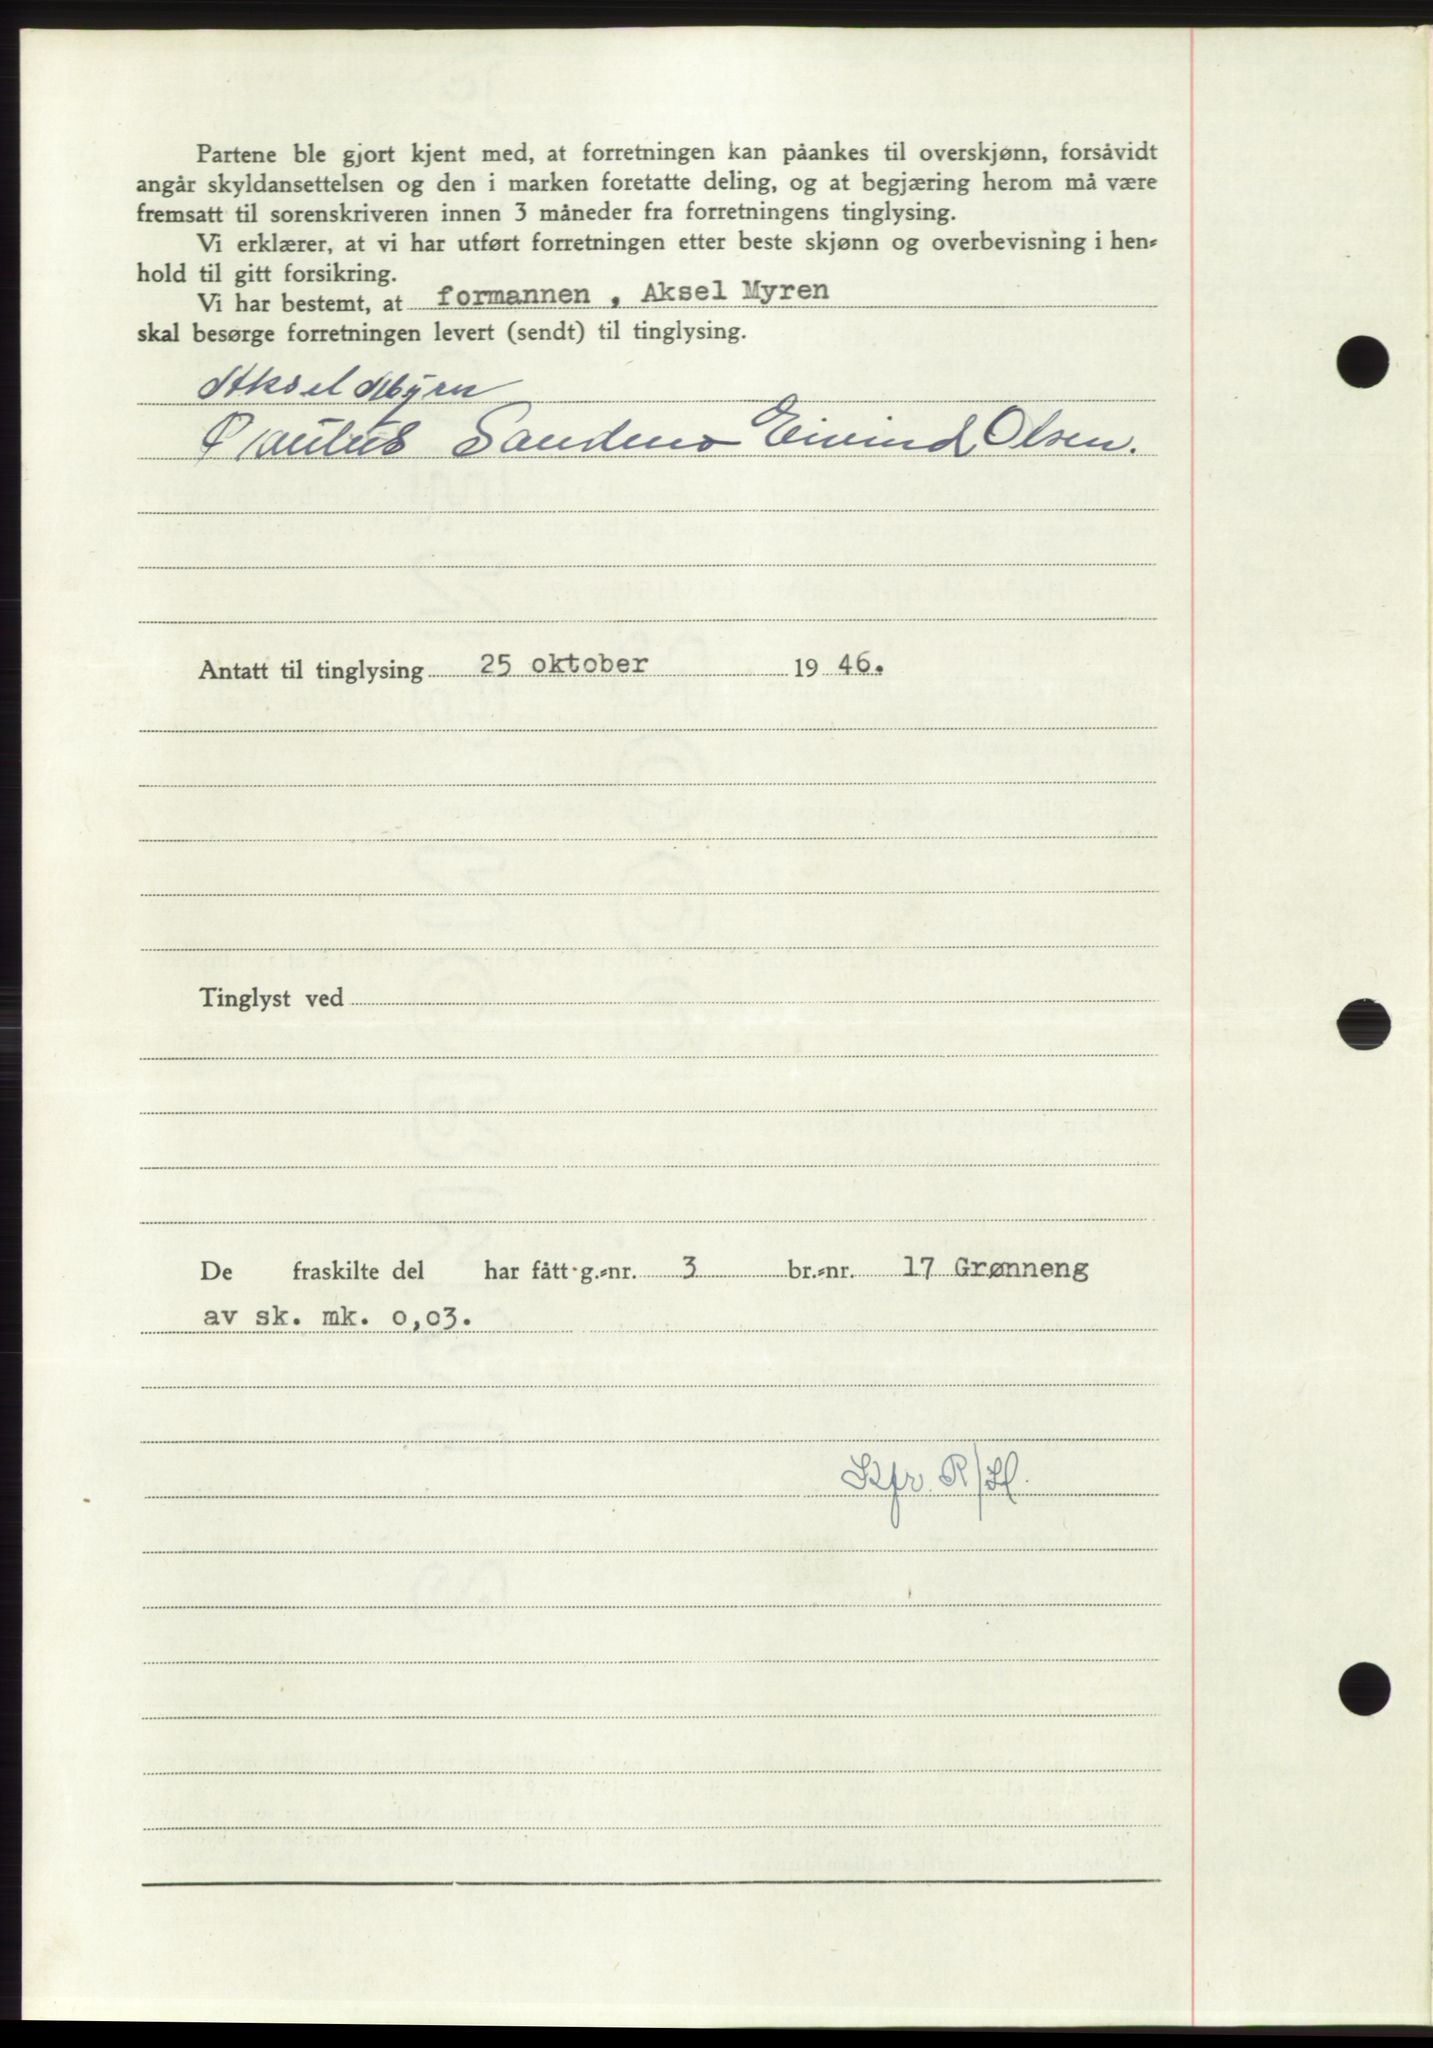 Partene ble gjort kjent med, at forretningen kan påankes til overskjønn, forsåvidt
angår skyldansettelsen og den i marken foretatte deling, og at begjæring herom må være
fremsatt til sorenskriveren innen 3 måneder fra forretningens tinglysing.
Vi erklærer, at vi har utført forretningen etter beste skjønn og overbevisning i hen-
hold til gitt forsikring.
Vi har bestemt, at formannen, Aksel Myren
skal besørge forretningen levert (sendt) til tinglysing.
Aksel Myren
Paulus Sandmo Eivind Olsen.
Antatt til tinglysing 25 oktober 19 46.
Tinglyst ved
De fraskilte del har fått g.-nr. 3 br.-nr. 17 Grønneng
av sk. mk. 0,03.
Kfr. R/H.